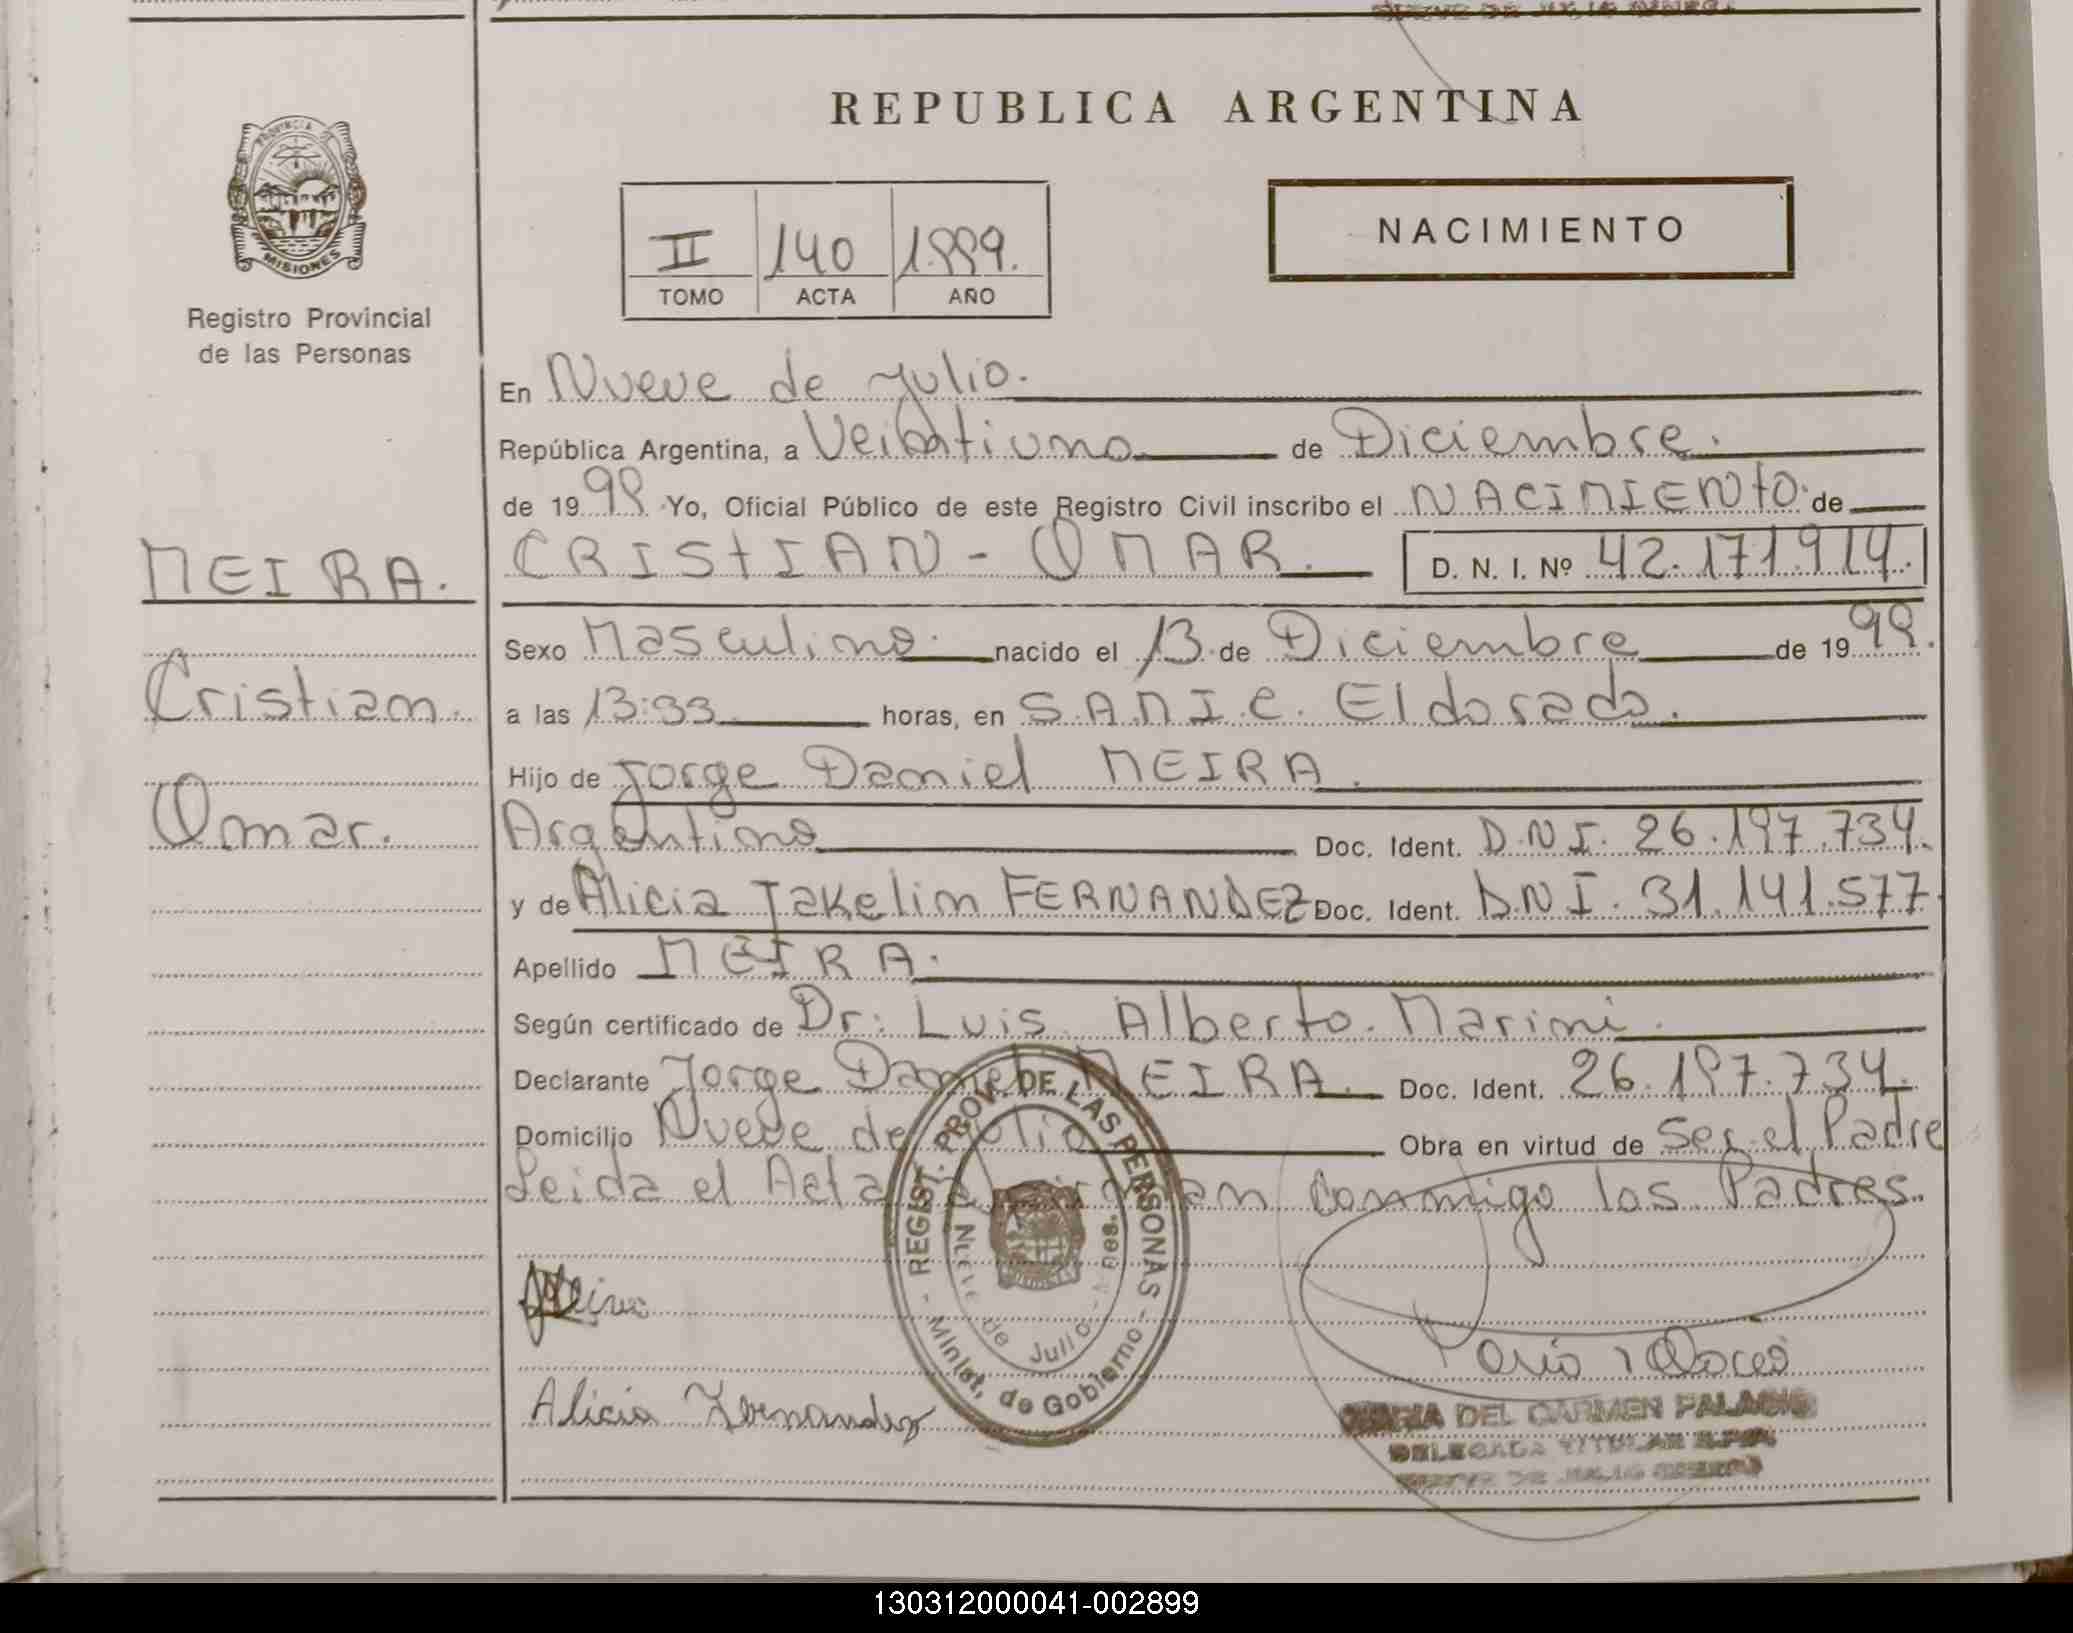 REPUBLICA ARGENTINA
PROVINCIA DE
MISIONES
Registro Provincial
de las Personas
II 140 1.999.
TOMO ACTA AÑO
NACIMIENTO
En Nueve de Julio.
República Argentina, a Veintiuno de Diciembre.
de 1999. Yo, Oficial Público de este Registro Civil inscribo el NACIMIENTO de
MEIRA.
Cristian.
Omar.
CRISTIAN - OMAR. D. N. I. Nº 42.171.914.
Sexo Masculino. nacido el 13 de Diciembre de 1999.
a las 13:33 horas, en S.A.M.I.C. Eldorado.
Hijo de Jorge Daniel MEIRA.
Argentino Doc. Ident. D.N.I. 26.197.734.
y de Alicia Jakelin FERNANDEZ Doc. Ident. D.N.I. 31.141.577
Apellido MEIRA.
Según certificado de Dr: Luis Alberto Marini.
Declarante Jorge Daniel MEIRA. Doc. Ident. 26.197.734.
Domicilio Nueve de Julio Obra en virtud de Ser el Padre
Leida el Acta la firman conmigo los Padres.
REGIST. PROV. DE LAS PERSONAS - Minist. de Gobierno -
Nueve de Julio - Mnes.
Meira
Alicia Fernandez
MARIA DEL CARMEN PALACIO
DELEGADA TITULAR R.P.P.
NUEVE DE JULIO
130312000041-002899